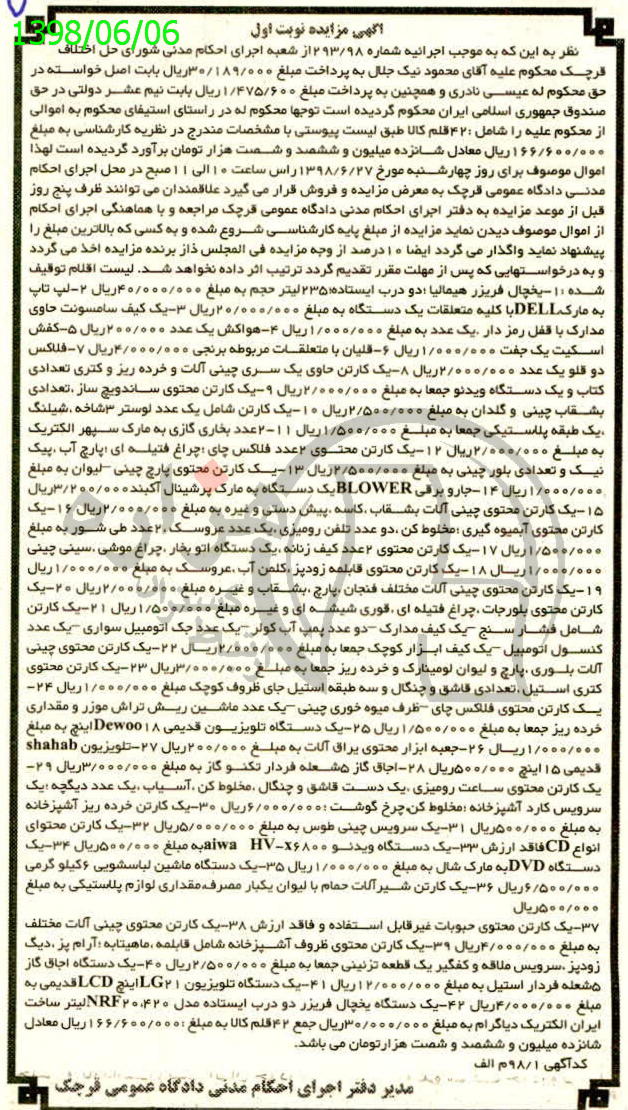 1398/06/06
آگهی مزایده نوبت اول
نظر به این که به موجب اجرائیه شماره ۲۹۳/۹۸از شعبه اجرای احکام مدنی شورای حل اختلاف
قرچک محکوم علیه آقای محمود نیک جلال به پرداخت مبلغ ۳۰/۱۸۹/۰۰۰ریال بابت اصل خواسته در
حق محکوم له عیسی نادری و همچنین به پرداخت مبلغ ۱/۴۷۵/۶۰۰ریال بابت نیم عشر دولتی در حق
صندوق جمهوری اسلامی ایران محکوم گردیده است توجها محکوم له در راستای استیفای محکوم به اموالی
از محکوم علیه را شامل :۴۲قلم کالا طبق لیست پیوستی با مشخصات مندرج در نظریه کارشناسی به مبلغ
۱۶۶/۶۰۰/۰۰۰ریال معادل شانزده میلیون و ششصد و شصت هزار تومان برآورد گردیده است لهذا
اموال موصوف برای روز چهارشنبه مورخ ۱۳۹۸/۶/۲۷راس ساعت ۱۰الی ۱۱صبح در محل اجرای احکام
مدنی دادگاه عمومی قرچک به معرض مزایده و فروش قرار می گیرد علاقمندان می توانند ظرف پنج روز
قبل از موعد مزایده به دفتر اجرای احکام مدنی دادگاه عمومی قرچک مراجعه و با هماهنگی اجرای احکام
از اموال موصوف دیدن نماید مزایده از مبلغ پایه کارشناسی شروع شده و به کسی که بالاترین مبلغ را
پیشنهاد نماید واگذار می گردد ایضا ۱۰درصد از وجه مزایده فی المجلس ذاز برنده مزایده اخذ می گردد
و به درخواستهایی که پس از مهلت مقرر تقدیم گردد ترتیب اثر داده نخواهد شد. لیست اقلام توقیف
شده :۱-یخچال فریزر هیمالیا ؛دو درب ایستاده؛۲۳۵لیتر حجم به مبلغ ۴۰/۰۰۰/۰۰۰ریال ۲-لپ تاپ
به مارکDELLبا کلیه متعلقات یک دستگاه به مبلغ ۲۰/۰۰۰/۰۰۰ریال ۳-یک کیف سامسونت حاوی
مدارک با قفل رمز دار .یک عدد به مبلغ ۱/۰۰۰/۰۰۰ریال ۴-هواکش یک عدد ۲۰۰/۰۰۰ریال ۵-کفش
اسکیت یک جفت ۱/۰۰۰/۰۰۰ریال ۶-قلیان با متعلقات مربوطه برنجی ۴/۰۰۰/۰۰۰ریال ۷-فلاکس
دو قلو یک عدد ۲/۰۰۰/۰۰۰ریال ۸-یک کارتن حاوی یک سری چینی آلات و خرده ریز و کتری تعدادی
کتاب و یک دستگاه ویدئو جمعا به مبلغ ۲/۰۰۰/۰۰۰ریال ۹-یک کارتن محتوی ساندویچ ساز ،تعدادی
بشقاب چینی و گلدان به مبلغ ۲/۵۰۰/۰۰۰ریال ۱۰-یک کارتن شامل یک عدد لوستر ۳شاخه ،شیلنگ
،یک طبقه پلاستیکی جمعا به مبلغ ۱/۵۰۰/۰۰۰ریال ۱۱-۲عدد بخاری گازی به مارک سپهر الکتریک
به مبلغ ۲/۰۰۰/۰۰۰ریال ۱۲-یک کارتن محتوی ۲عدد فلاکس چای ؛چراغ فتیله ای ؛پارچ آب ،پیک
نیک و تعدادی بلور چینی به مبلغ ۲/۵۰۰/۰۰۰ریال ۱۳-یک کارتن محتوی پارچ چینی –لیوان به مبلغ
۱/۰۰۰/۰۰۰ریال ۱۴-جارو برقی BLOWERیک دستگاه به مارک پرشینال آکبند۳/۲۰۰/۰۰۰ریال
۱۵-یک کارتن محتوی چینی آلات بشقاب، کاسه ،پیش دستی و غیره به مبلغ ۲/۰۰۰/۰۰۰ریال ۱۶-یک
کارتن محتوی آبمیوه گیری ؛مخلوط کن ،دو عدد تلفن رومیزی ،یک عدد عروسک ،۲عدد طی شور به مبلغ
۱/۵۰۰/۰۰۰ریال ۱۷-یک کارتن محتوی ۲عدد کیف زنانه ،یک دستگاه اتو بخار ،چراغ موشی ،سینی چینی
۱/۰۰۰/۰۰۰ریال ۱۸-یک کارتن محتوی قابلمه زودپز ،کلمن آب ،عروسک به مبلغ ۱/۰۰۰/۰۰۰ریال
۱۹-یک کارتن محتوی چینی آلات مختلف فنجان ،پارچ ،بشقاب و غیره مبلغ ۲/۰۰۰/۰۰۰ریال ۲۰-یک
کارتن محتوی بلورجات ،چراغ فتیله ای ،قوری شیشه ای و غیره مبلغ ۱/۵۰۰/۰۰۰ریال ۲۱-یک کارتن
شامل فشار سنج –یک کیف مدارک –دو عدد پمپ آب کولر –یک عدد جک اتومبیل سواری –یک عدد
کنسول اتومبیل –یک کیف ابزار کوچک جمعا به مبلغ ۲/۰۰۰/۰۰۰ریال ۲۲-یک کارتن محتوی چینی
آلات بلوری ،پارچ و لیوان لومینارک و خرده ریز جمعا به مبلغ ۳/۰۰۰/۰۰۰ریال ۲۳-یک کارتن محتوی
کتری استیل ،تعدادی قاشق و چنگال و سه طبقه استیل جای ظروف کوچک مبلغ ۱/۰۰۰/۰۰۰ریال ۲۴-
یک کارتن محتوی فلاکس چای –ظرف میوه خوری چینی –یک عدد ماشین ریش تراش موزر و مقداری
خرده ریز جمعا به مبلغ ۱/۵۰۰/۰۰۰ریال ۲۵-یک دستگاه تلویزیون قدیمی Dewoo۱۸اینچ به مبلغ
۱/۰۰۰/۰۰۰ریال ۲۶-جعبه ابزار محتوی یراق آلات به مبلغ ۲۰۰/۰۰۰ریال ۲۷-تلویزیون shahab
قدیمی ۱۵اینچ ۵۰۰/۰۰۰ریال ۲۸-اجاق گاز ۵شعله فردار تکنو گاز به مبلغ ۳/۰۰۰/۰۰۰ریال ۲۹-
یک کارتن محتوی ساعت رومیزی ،یک دست قاشق و چنگال ،مخلوط کن ،آسیاب ،یک عدد دیگچه ؛یک
سرویس کارد آشپزخانه ؛مخلوط کن،چرخ گوشت ؛۶/۰۰۰/۰۰۰ریال ۳۰-یک کارتن خرده ریز آشپزخانه
به مبلغ ۵۰۰/۰۰۰ریال ۳۱-یک سرویس چینی طوس به مبلغ ۵/۰۰۰/۰۰۰ریال ۳۲-یک کارتن محتوای
انواع CDفاقد ارزش ۳۳-یک دستگاه ویدئو aiwa HV-x۶۸۰۰به مبلغ ۵۰۰/۰۰۰ریال ۳۴-یک
دستگاه DVDبه مارک شال به مبلغ ۱/۰۰۰/۰۰۰ریال ۳۵-یک دستگاه ماشین لباسشویی ۶کیلو گرمی
۶/۵۰۰/۰۰۰ریال ۳۶-یک کارتن شیرآلات حمام با لیوان یکبار مصرف،مقداری لوازم پلاستیکی به مبلغ
۵۰۰/۰۰۰ریال
۳۷-یک کارتن محتوی حبوبات غیرقابل استفاده و فاقد ارزش ۳۸-یک کارتن محتوی چینی آلات مختلف
به مبلغ ۴/۰۰۰/۰۰۰ریال ۳۹-یک کارتن محتوی ظروف آشپزخانه شامل قابلمه ،ماهیتابه ؛آرام پز ،دیگ
زودپز ،سرویس ملاقه و کفگیر یک قطعه تزئینی جمعا به مبلغ ۲/۵۰۰/۰۰۰ریال ۴۰-یک دستگاه اجاق گاز
۵شعله فردار استیل به مبلغ ۱۲/۰۰۰/۰۰۰ریال ۴۱-یک دستگاه تلویزیون LG۲۱اینچ LCDقدیمی به
مبلغ ۴/۰۰۰/۰۰۰ریال ۴۲-یک دستگاه یخچال فریزر دو درب ایستاده مدل NRF۲۰،۴۲۰لیتر ساخت
ایران الکتریک دیاگرام به مبلغ ۳۰/۰۰۰/۰۰۰ریال جمع ۴۲قلم کالا به مبلغ :۱۶۶/۶۰۰/۰۰۰ریال معادل
شانزده میلیون و ششصد و شصت هزارتومان می باشد.
کدآگهی ۹۸/۱م الف
مدیر دفتر اجرای احکام مدنی دادگاه عمومی قرچک